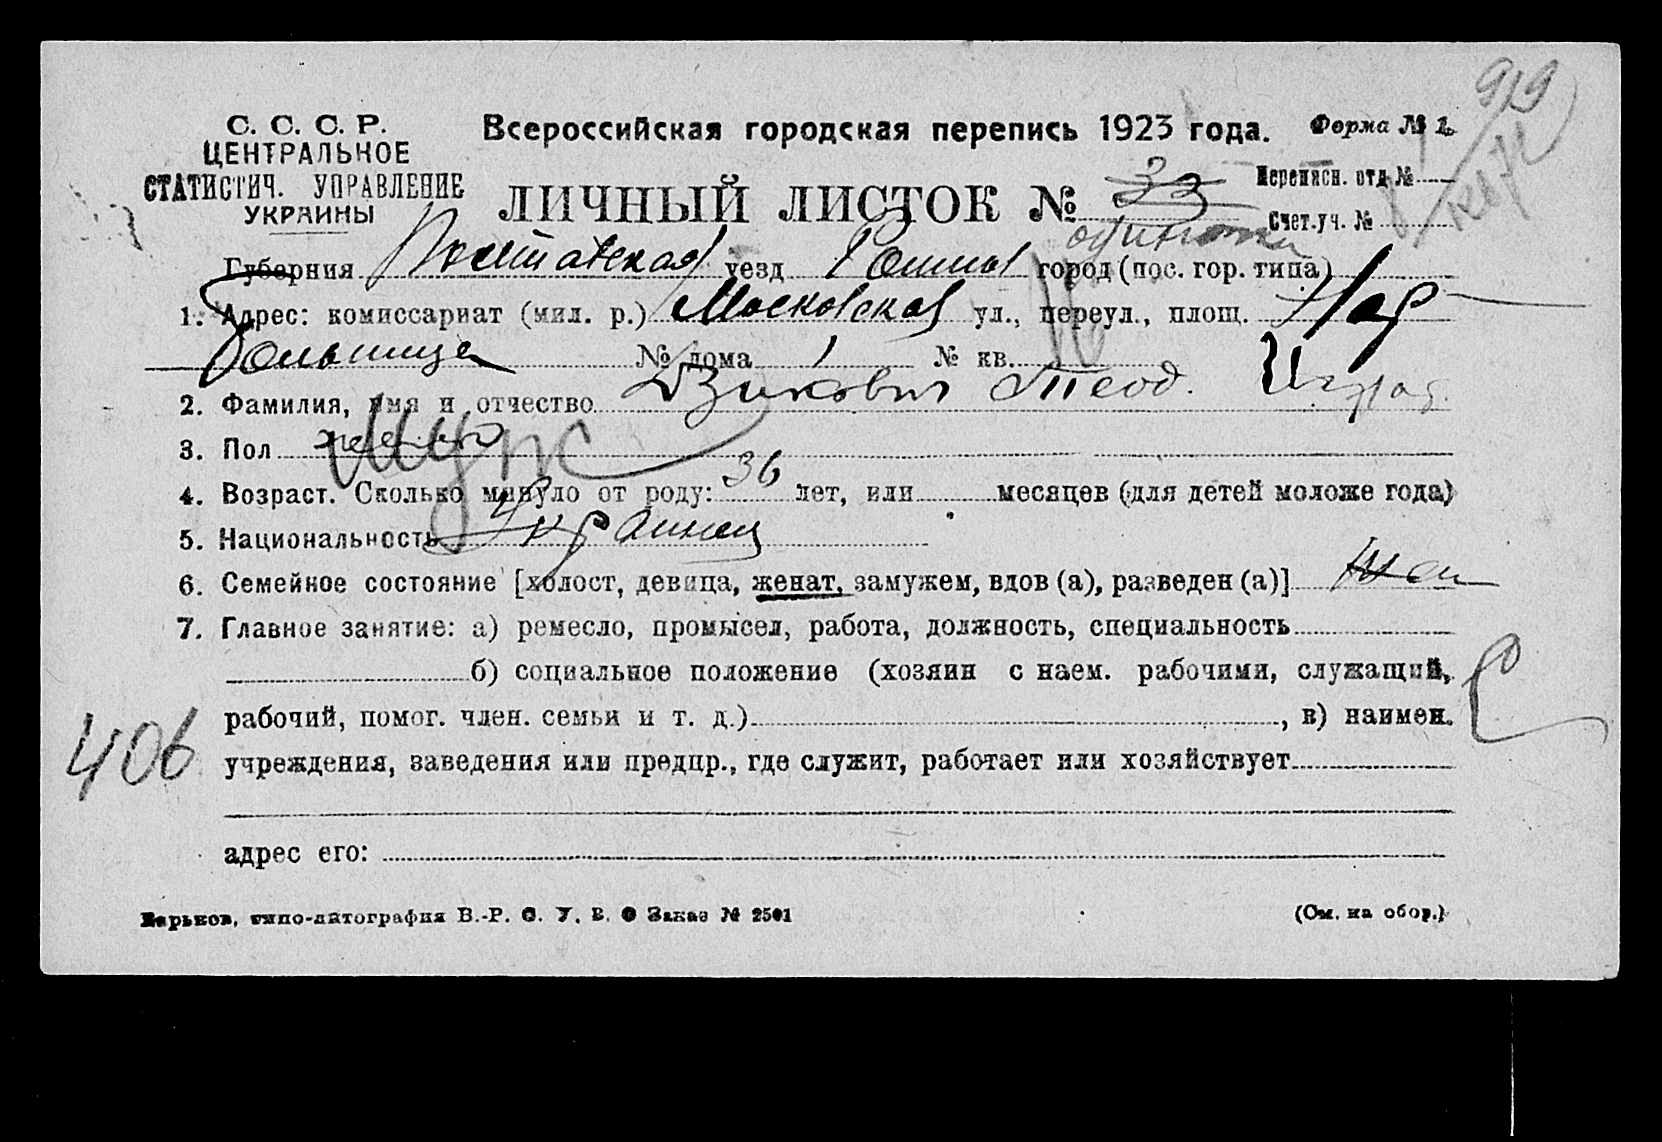 919
С. С. С. Р.
ЦЕНТРАЛЬНОЕ
СТАТИСТИЧ. УПРАВЛЕНИЕ
УКРАИНЫ
Всероссийская городская перепись 1923 года.
Форма № 1.
ЛИЧНЫЙ ЛИСТОК № 33
Переписн. отд №
Счет.уч. №
Губерния Полтавская уезд Ромны город (пос. гор. типа)
1. Адрес: комиссариат (мил. р.) Московская ул., переул., площ. Нар
больница № дома 1 № кв.
2. Фамилия, имя и отчество Дзикович Теод.
3. Пол муж
4. Возраст. Сколько минуло от роду: 36 лет, или месяцев (для детей моложе года)
5. Национальность Украинец
6. Семейное состояние [холост, девица, женат, замужем, вдов (а), разведен (а)]
7. Главное занятие: а) ремесло, промысел, работа, должность, специальность
б) социальное положение (хозяин с наем. рабочими, служащий,
рабочий, помог. член. семьи и т. д.) , в) наимен.
406 учреждения, заведения или предпр., где служит, работает или хозяйствует
адрес его:
Харьков, типо-литография В.-Р. С. У. В. О Заказ № 2501
(См. на обор.)